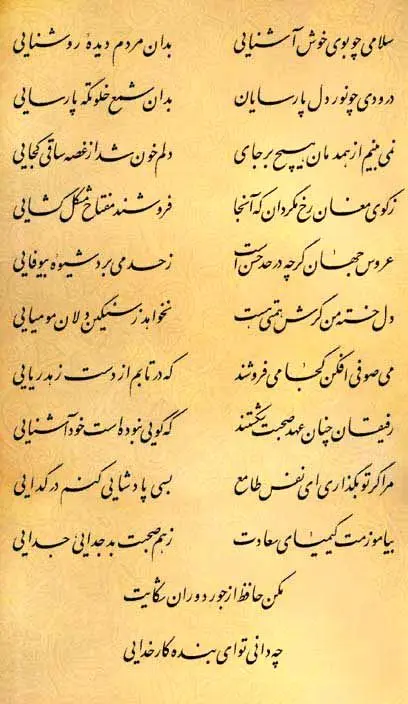 سلامی چو بوی خوش آشنایی بدان مردم دیدهٔ روشنایی
درودی چو نور دل پارسایان بدان شمع خلوتگه پارسایی
نمی‌بینم از همدمان هیچ بر جای دلم خون شد از غصه ساقی کجایی
ز کوی مغان رخ مگردان که آنجا فروشند مفتاح مشکل گشایی
عروس جهان گرچه در حد حسن است ز حد می‌برد شیوهٔ بیوفایی
دل خسته من گرش همتی هست نخواهد ز سنگین دلان مومیایی
می صوفی افکن کجا می‌فروشند که در تابم از دست زهد ریایی
رفیقان چنان عهد صحبت شکستند که گویی نبوده‌است خود آشنایی
مرا گر تو بگذاری ای نفس طامع بسی پادشایی کنم در گدایی
بیاموزمت کیمیای سعادت ز هم صحبت بد جدایی جدایی
مکن حافظ از جور دوران شکایت
چه دانی تو ای بنده کار خدایی